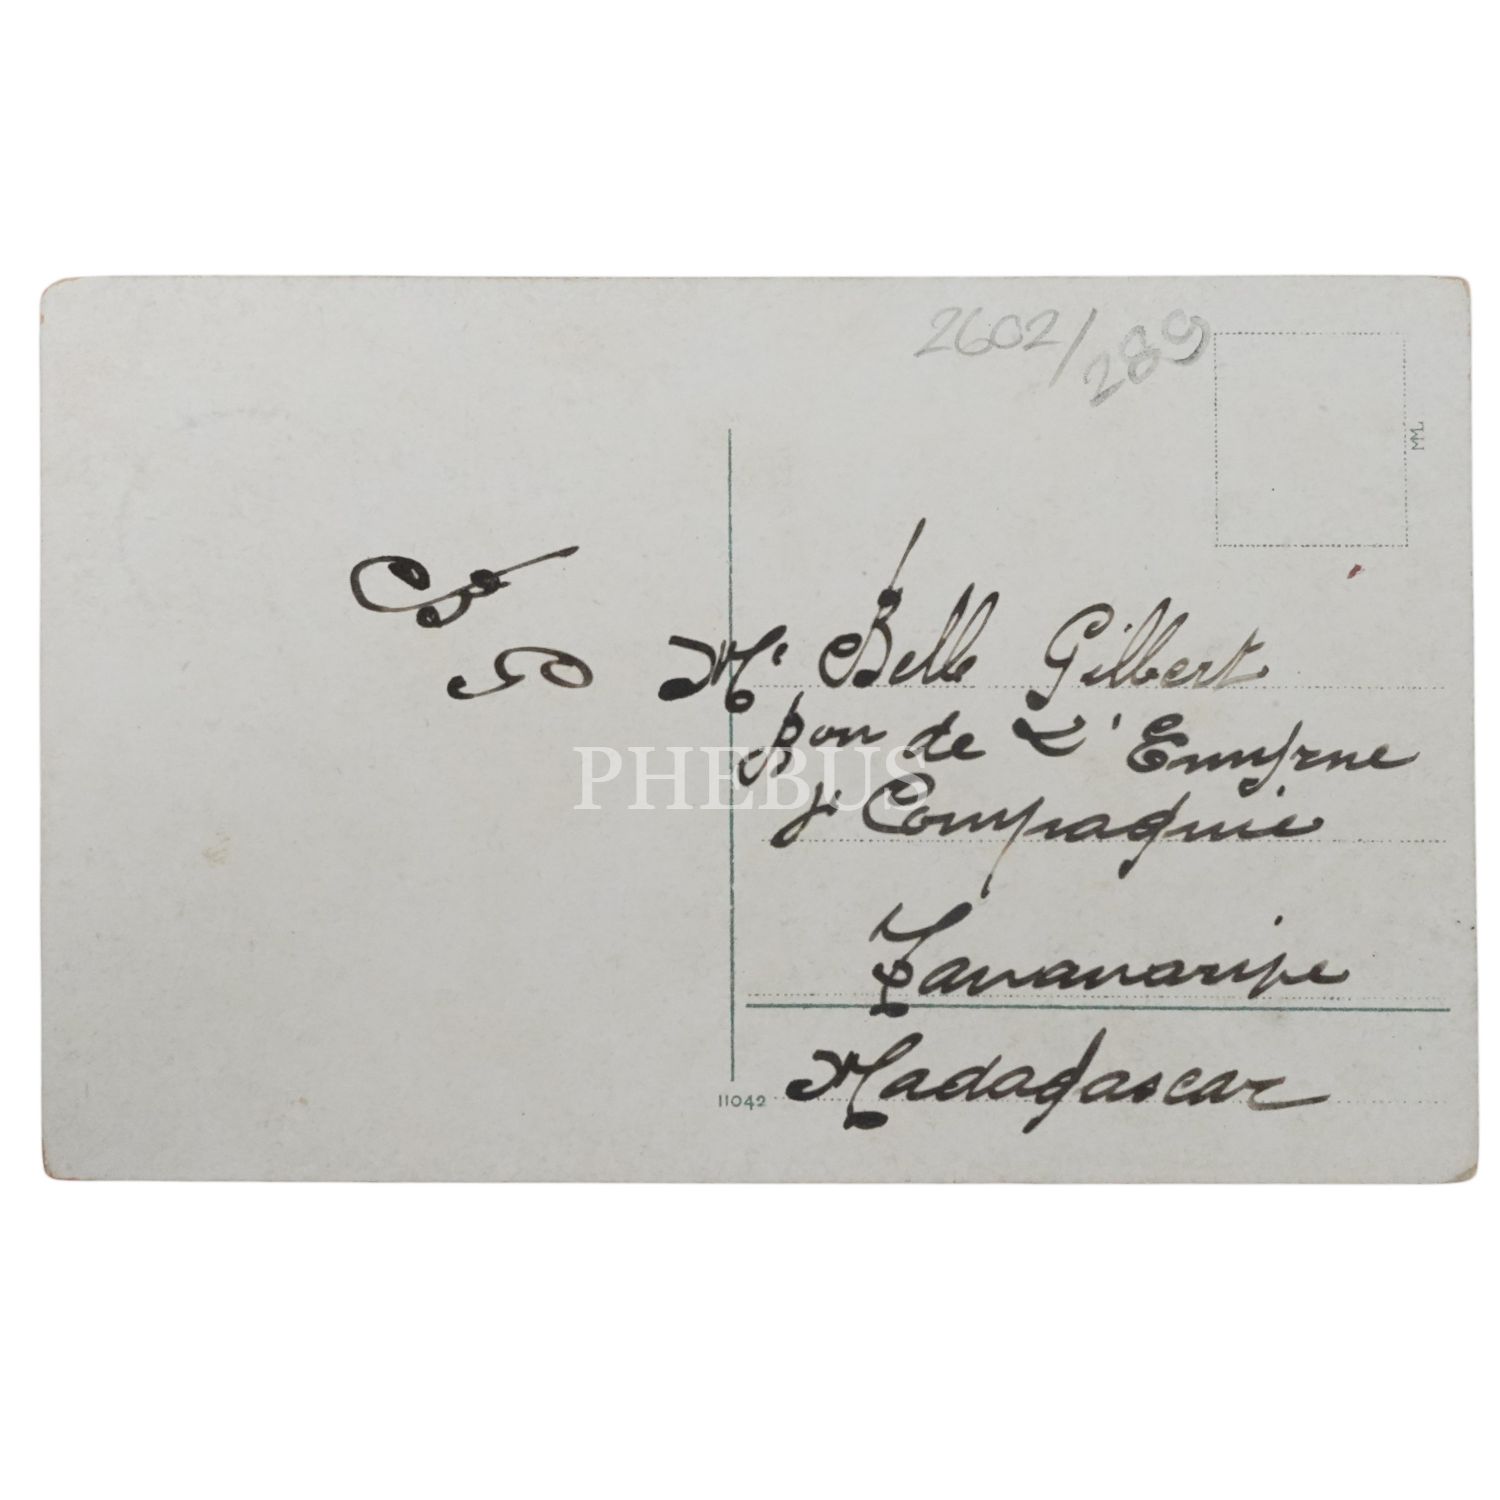 2602/289
MML
Mr Belle Gilbert
Bon de L'Emyrne
Compagnie
PHEBUS
Tananarive
Madagascar
11042